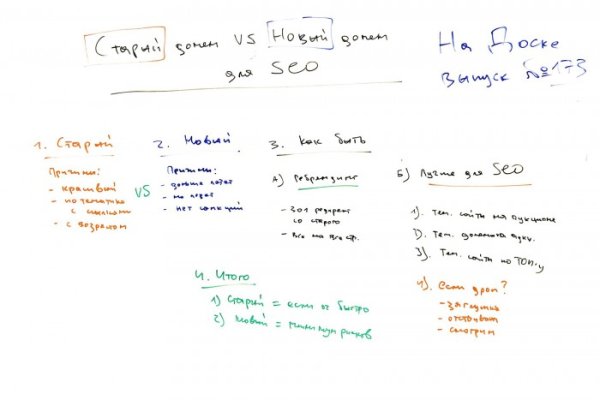 Старый домен VS Новый домен
для SEO
На Доске
выпуск №173
1. Старый
Причины:
- красивый
- по тематике
с ссылками
- с возрастом
VS
2. Новый
Причины:
- дольше
- не
- нет санкций
3. Как быть
А) Ребрендинг
- 301 редирект
со старого
- Все на все стр.
Б) Лучше для SEO
1). Тем. сайты на аукционе
2). Тем. домены аукц.
3). Тем. сайты по ТОП-у
4). Если дроп?
- заглушка
- отстойник
- смотрим
4. Итого
1) Старый = если ок быстро
2) Новый = минимум рисков